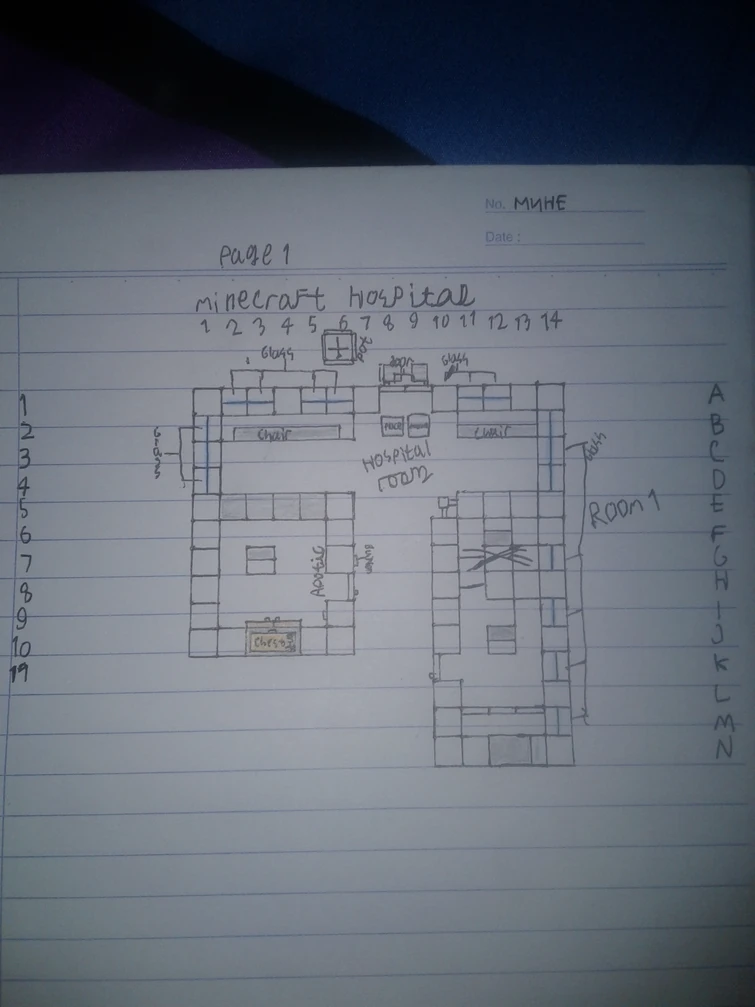 No. МИНЕ
Date :
Page 1
Minecraft Hospital
1 2 3 4 5 6 7 8 9 10 11 12 13 14
Glass
Door
Glass
1
2
3
4
5
6
7
8
9
10
19
Chair
Chair
Hospital
Glass
Glass
Room 1
A
B
C
D
E
F
G
H
I
J
K
L
M
N